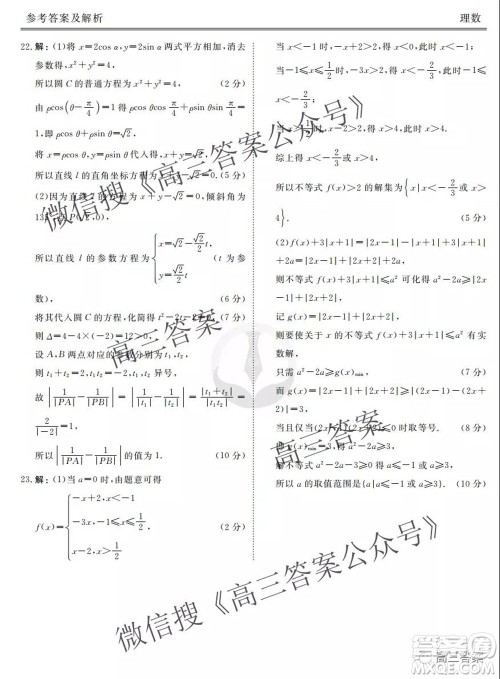 参考答案及解析
理数
22.解:(1)将x=2cos α,y=2sin α两式平方相加,消去
参数得,x²+y²=4,
所以圆C的普通方程为x²+y²=4, (2分)
由ρcos(θ-π/4)=1得ρcos θcos π/4+ρsin θsin π/4
=1,即ρcos θ+ρsin θ=√2,
将x=ρcos θ,y 代入得,x+y=√2,
所以直线l的直角坐标方程为 (5分)
(2)因为直线l的方程为x+y=√2,
所以直线l的参数方程为{x=√2-√2/2 t (t为参
数), (6分)
将其代入圆C的方程,化简得t²-2t-2
则Δ=4-4×(-2)=12>0,
设A,B两点对应的参数分别为t₁,t₂,
故|1/|PA|-1/|PB||=|1/|t₁|-1/|t₂||=|t₁+t₂|/|t₁t₂|=
2/|-2|=1,
所以|1/|PA|-1/|PB||的值为1. (10分)
23.解:(1)当a=0时,由题意可得
f(x)={-x+2,x<-1
-3x,-1≤x≤1/2 (2分)
x-2,x>1/2
当x<-1时,-x+2>2,得x<0,此时x<-1;
当-1≤x≤1/2时,-3x>2,得x<-2/3,此时-1≤x
<-2/3;
当x>1/2时,x-2>2,得x>4,此时x>4.
综上得x<-2/3或x>4.
所以不等式f(x)>2的解集为{x|x<-2/3或x>
4}. (6分)
(2)f(x)+3|x+1|=|2x-1|+2|x+1|+2a,
则不等式f(x)+3|x+1|≤a²可化为|2x-1|+
2|x+1|≤a²-2a, (7分)
记g(x)=|2x-1|+2|x+1|,
则要使关于x的不等式f(x)+3|x+1|≤a²有实
数解,
只需a²-2a≥g(x)min, (7分)
而g(x)=|2x-1|+|2x+2|≥|(2x-1)-(2x+2)|
=3,
当且仅当(2x-1)(2x+2)≤0时取等号. (8分)
所以a的取值范围是 (10分)
微信搜《高三答案公众号》
高三答案
高三答案
微信搜《高三答案公众号》
高三答案